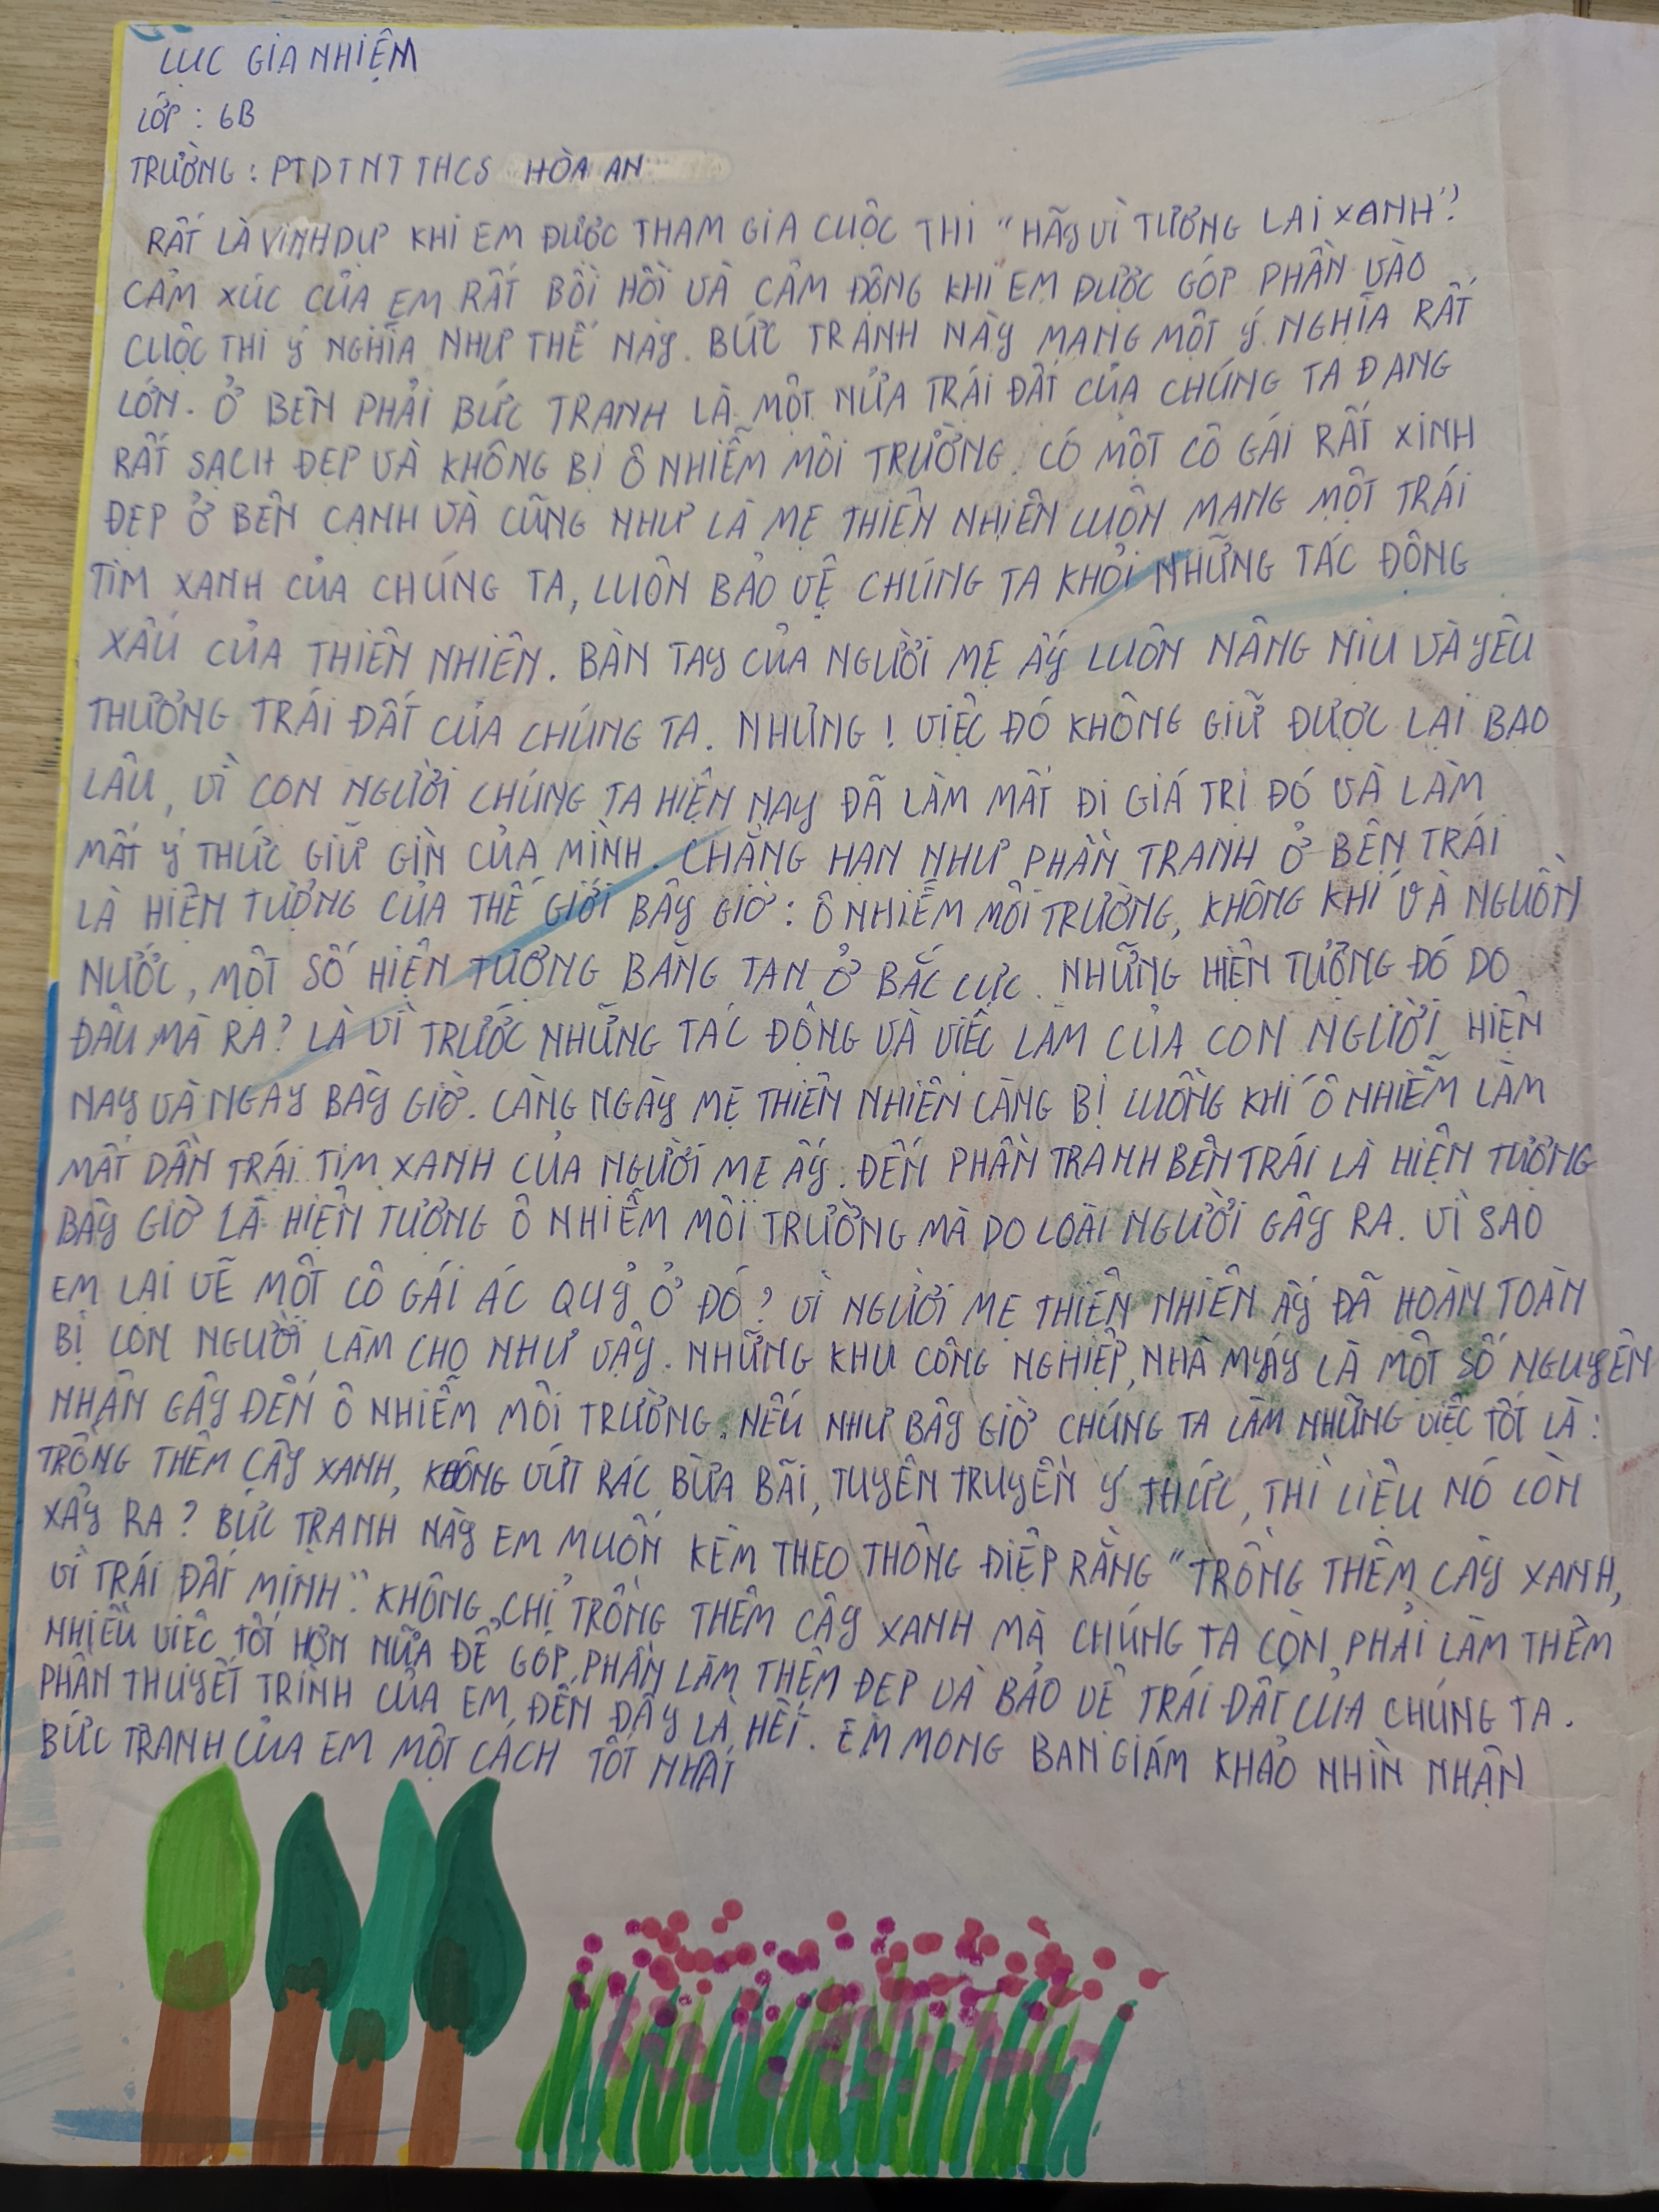 LỤC GIA NHIỆM
LỚP : 6B
TRƯỜNG : PTDTNT THCS HÒA AN
RẤT LÀ VINH DỰ KHI EM ĐƯỢC THAM GIA CUỘC THI "HÃY VÌ TƯƠNG LAI XANH".
CẢM XÚC CỦA EM RẤT BỒI HỒI VÀ CẢM ĐỘNG KHI EM ĐƯỢC GÓP PHẦN VÀO
CUỘC THI Ý NGHĨA NHƯ THẾ NÀY. BỨC TRANH NÀY MANG MỘT Ý NGHĨA RẤT
LỚN. Ở BÊN PHẢI BỨC TRANH LÀ MỘT NỬA TRÁI ĐẤT CỦA CHÚNG TA ĐANG
RẤT SẠCH ĐẸP VÀ KHÔNG BỊ Ô NHIỄM MÔI TRƯỜNG. CÓ MỘT CÔ GÁI RẤT XINH
ĐẸP Ở BÊN CẠNH VÀ CŨNG NHƯ LÀ MẸ THIÊN NHIÊN LUÔN MANG MỘT TRÁI
TIM XANH CỦA CHÚNG TA, LUÔN BẢO VỆ CHÚNG TA KHỎI NHỮNG TÁC ĐỘNG
XẤU CỦA THIÊN NHIÊN. BÀN TAY CỦA NGƯỜI MẸ ẤY LUÔN NÂNG NIU VÀ YÊU
THƯƠNG TRÁI ĐẤT CỦA CHÚNG TA. NHƯNG ! VIỆC ĐÓ KHÔNG GIỮ ĐƯỢC LẠI BAO
LÂU, VÌ CON NGƯỜI CHÚNG TA HIỆN NAY ĐÃ LÀM MẤT ĐI GIÁ TRỊ ĐÓ VÀ LÀM
MẤT Ý THỨC GIỮ GÌN CỦA MÌNH. CHẲNG HẠN NHƯ PHẦN TRANH Ở BÊN TRÁI
LÀ HIỆN TƯỢNG CỦA THẾ GIỚI BÂY GIỜ : Ô NHIỄM MÔI TRƯỜNG, KHÔNG KHÍ VÀ NGUỒN
NƯỚC, MỘT SỐ HIỆN TƯỢNG BĂNG TAN Ở BẮC CỰC. NHỮNG HIỆN TƯỢNG ĐÓ DO
ĐÂU MÀ RA ? LÀ VÌ TRƯỚC NHỮNG TÁC ĐỘNG VÀ VIỆC LÀM CỦA CON NGƯỜI HIỆN
NAY VÀ NGAY BÂY GIỜ. CÀNG NGÀY MẸ THIÊN NHIÊN CÀNG BỊ LUỒNG KHÍ Ô NHIỄM LÀM
MẤT DẦN TRÁI TIM XANH CỦA NGƯỜI MẸ ẤY. ĐẾN PHẦN TRANH BÊN TRÁI LÀ HIỆN TƯỢNG
BÂY GIỜ LÀ HIỆN TƯỢNG Ô NHIỄM MÔI TRƯỜNG MÀ DO LOÀI NGƯỜI GÂY RA. VÌ SAO
EM LẠI VẼ MỘT CÔ GÁI ÁC QUỶ Ở ĐÓ ? VÌ NGƯỜI MẸ THIÊN NHIÊN ẤY ĐÃ HOÀN TOÀN
BỊ CON NGƯỜI LÀM CHO NHƯ VẬY. NHỮNG KHU CÔNG NGHIỆP, NHÀ MÁY LÀ MỘT SỐ NGUYÊN
NHÂN GÂY ĐẾN Ô NHIỄM MÔI TRƯỜNG. NẾU NHƯ BÂY GIỜ CHÚNG TA LÀM NHỮNG VIỆC TỐT LÀ :
TRỒNG THÊM CÂY XANH, KHÔNG VỨT RÁC BỪA BÃI, TUYÊN TRUYỀN Ý THỨC, THÌ LIỆU NÓ CÒN
XẢY RA ? BỨC TRANH NÀY EM MUỐN KÈM THEO THÔNG ĐIỆP RẰNG "TRỒNG THÊM CÂY XANH,
VÌ TRÁI ĐẤT MÌNH". KHÔNG CHỈ TRỒNG THÊM CÂY XANH MÀ CHÚNG TA CÒN PHẢI LÀM THÊM
NHIỀU VIỆC TỐT HƠN NỮA ĐỂ GÓP PHẦN LÀM THÊM ĐẸP VÀ BẢO VỆ TRÁI ĐẤT CỦA CHÚNG TA.
PHẦN THUYẾT TRÌNH CỦA EM ĐẾN ĐÂY LÀ HẾT. EM MONG BAN GIÁM KHẢO NHÌN NHẬN
BỨC TRANH CỦA EM MỘT CÁCH TỐT NHẤT